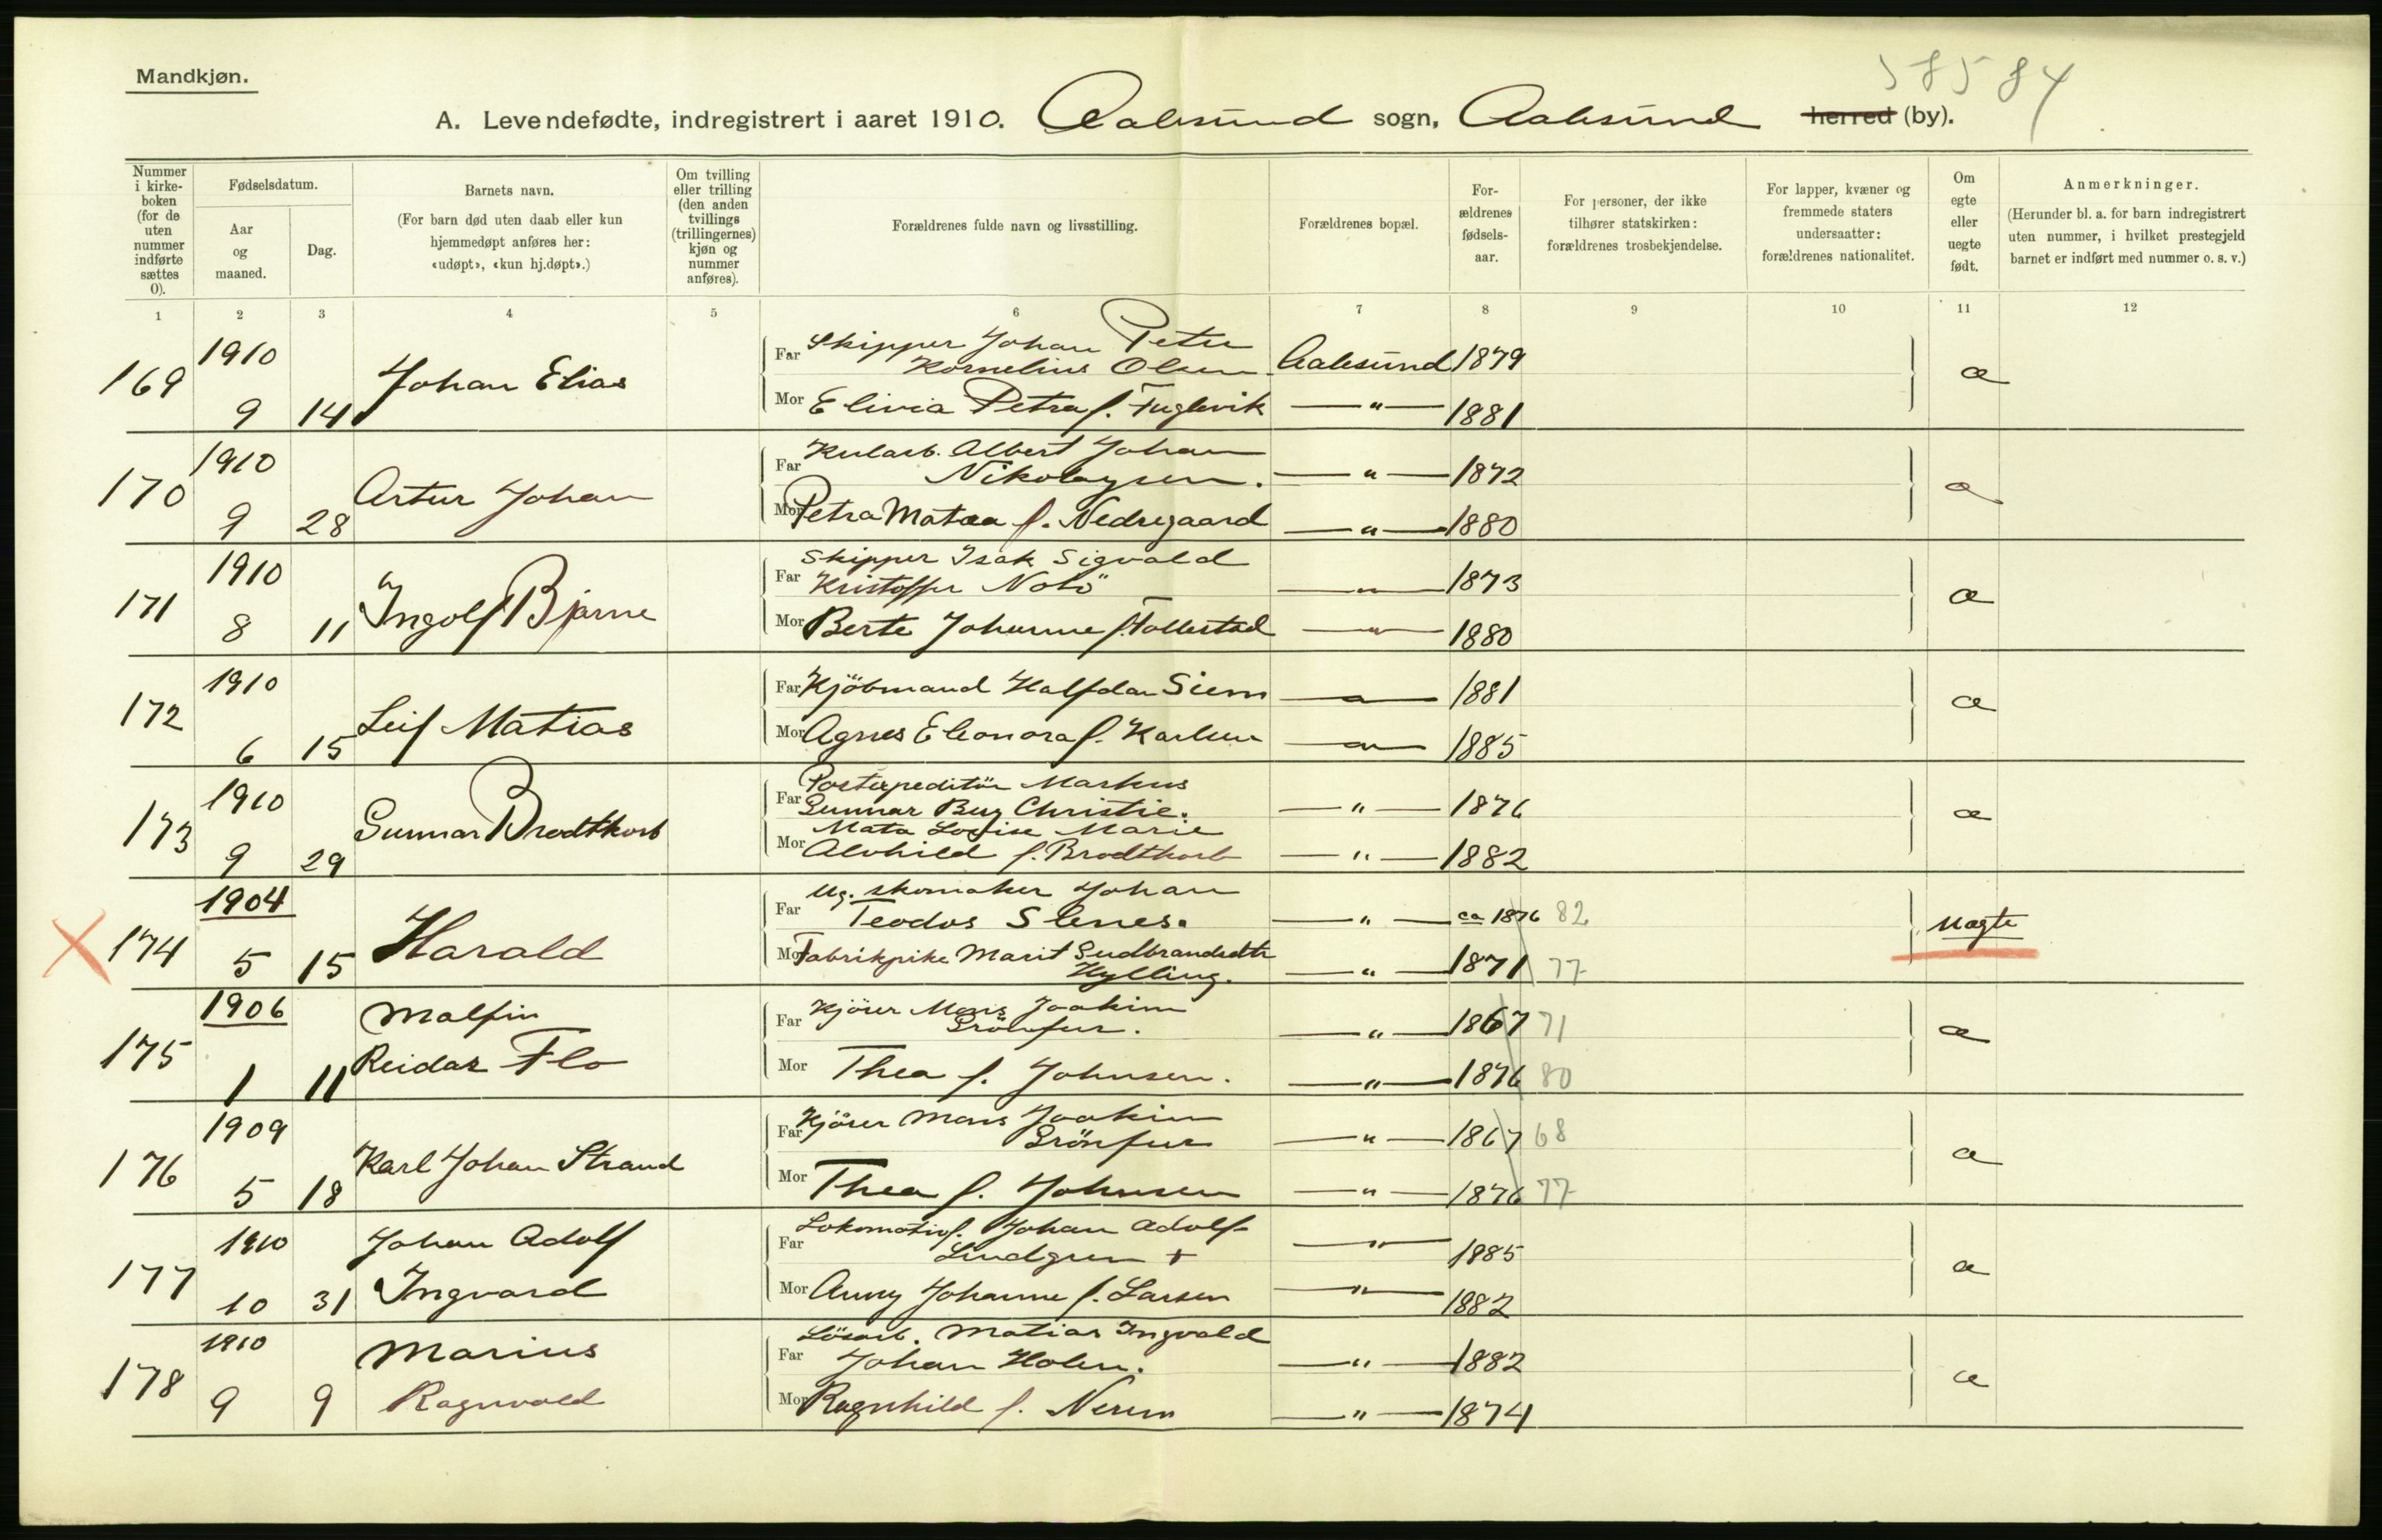 58584
Mandkjøn.
A. Levendefødte, indregistrert i aaret 1910. Aalesund sogn, Aalesund herred (by).
Nummer i kirke-boken (for de uten nummer indførte sættes 0).
Fødselsdatum.
Aar og maaned.
Dag.
Barnets navn.
(For barn død uten daab eller kun hjemmedøpt anføres her: «udøpt», «kun hj.døpt».)
Om tvilling eller trilling (den anden tvillings (trillingernes) kjøn og nummer anføres).
Forældrenes fulde navn og livsstilling.
Forældrenes bopæl.
For-ældrenes fødsels-aar.
For personer, der ikke tilhører statskirken: forældrenes trosbekjendelse.
For lapper, kvæner og fremmede staters undersaatter: forældrenes nationalitet.
Om egte eller uegte født.
Anmerkninger.
(Herunder bl. a. for barn indregistrert uten nummer, i hvilket prestegjeld barnet er indført med nummer o. s. v.)
1 2 3 4 5 6 7 8 9 10 11 12
169 1910 9 14 Johan Elias
Far Skipper Johan Peter Kornelius Olsen Aalesund 1879
Mor Elivia Petra f. Fuglevik — " — 1881
æ
170 1910 9 28 Artur Johan
Far Kularb. Albert Johan Nikolaysen. — " — 1872
Mor Petra Matea f. Nedregaard — " — 1880
æ
171 1910 8 11 Ingolf Bjarne
Far Skipper Isak Sigvald Kristoffer Notö — " — 1873
Mor Berte Johanne f. Tollestad — " — 1880
æ
172 1910 6 15 Leif Matias
Far Kjöbmand Halfdan Siem — " — 1881
Mor Agnes Eleonora f. Karlsen — " — 1885
æ
173 1910 9 29 Gunnar Brodtkorb
Far Postexpeditör Markus Gunnar Bug Christie. — " — 1876
Mor Mata Lovise Marie Alvhild f. Brodtkorb — " — 1882
æ
174 1904 5 15 Harald
Far Ug. skomaker Johan Teodor Slenes. — " — ca 1876 82
Mor Fabrikpike Marit Gudbrandsdtr Hylling. — " — 1871 77
uægte
175 1906 1 11 Malfin Reidar Flo
Far Kjörer Mons Joakim Grönfur. — " — 1867 71
Mor Thea f. Johnsen. — " — 1876 80
æ
176 1909 5 18 Karl Johan Strand
Far Kjörer Mons Joakim Grönfur — " — 1867 68
Mor Thea f. Johnsen — " — 1876 77
æ
177 1910 10 31 Johan Adolf Ingvard
Far Lokomotivf. Johan Adolf Lindgren + — " — 1885
Mor Anny Johanne f. Larsen — " — 1882
æ
178 1910 9 9 Marius Ragnvald
Far Lösarb. Matias Ingvald Johan Holen. — " — 1882
Mor Ragnhild f. Nerem — " — 1874
æ